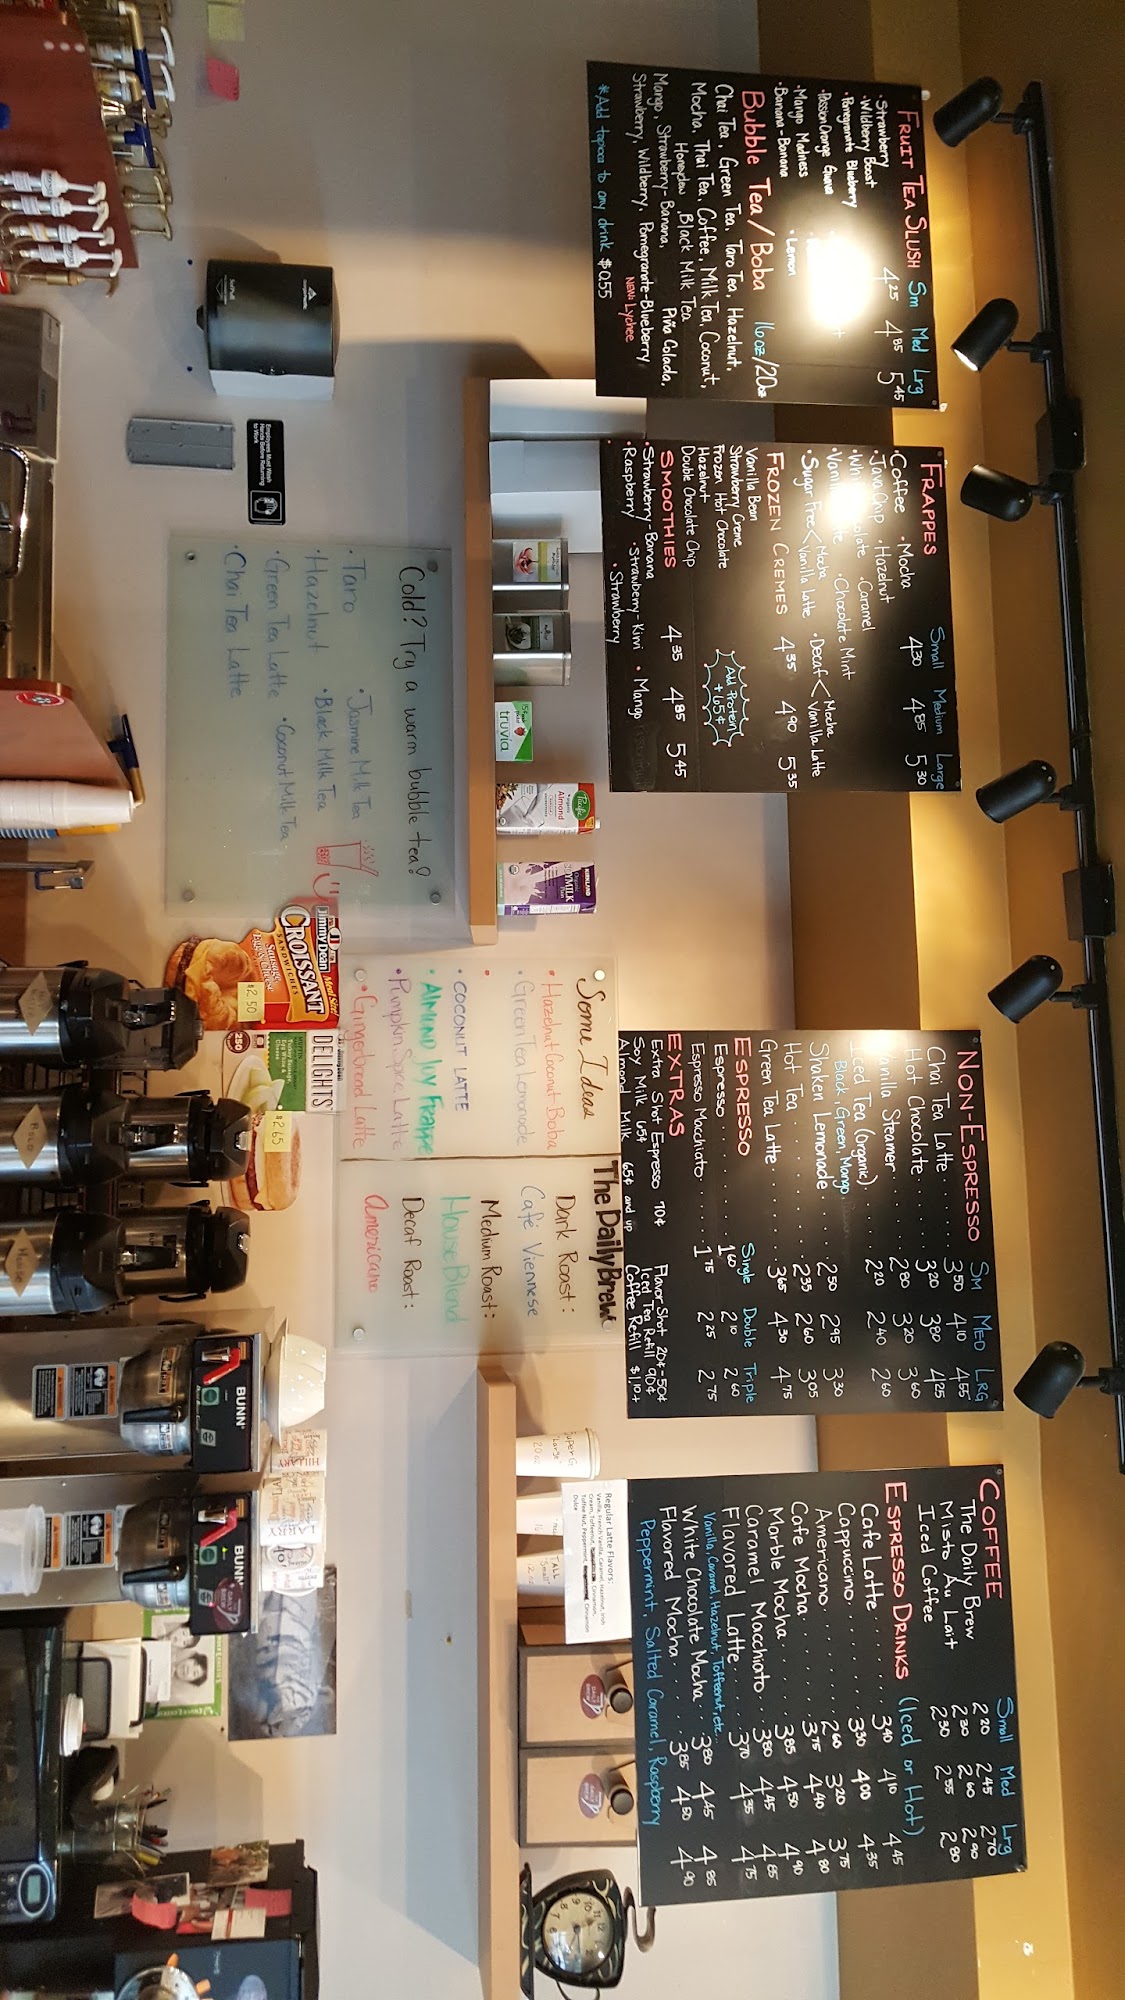 FRUIT TEA SLUSH Sm Med Lrg
4.25 4.85 5.45
•Strawberry
•Wildberry Boost
•Pomegranate Blueberry
•Passion Orange Guava
•Mango Madness
•Lemon
•Banana-Banana
Bubble Tea/Boba 16oz/20oz
Chai Tea, Green Tea, Taro Tea, Hazelnut,
Mocha, Thai Tea, Coffee, Milk Tea, Coconut,
Honeydew, Black Milk Tea
Mango, Strawberry-Banana, Piña Colada,
Strawberry, Wildberry, Pomegranate-Blueberry
NEW: Lychee
*Add tapioca to any drink $0.55
FRAPPES Small Medium Large
4.30 4.85 5.30
•Coffee •Mocha
•Java Chip •Hazelnut
•Caramel
•Chocolate Mint
•Sugar Free < Mocha
Vanilla Latte
•Decaf < Mocha
Vanilla Latte
FROZEN CREMES 4.35 4.90 5.35
Vanilla Bean
Strawberry Creme
Frozen Hot Chocolate
Hazelnut
Double Chocolate Chip
Add Protein!
+65¢
SMOOTHIES 4.35 4.85 5.45
•Strawberry-Banana •Strawberry-Kiwi •Mango
•Raspberry •Strawberry
NON-ESPRESSO SM MED LRG
Chai Tea Latte 3.50 4.10 4.55
Hot Chocolate 3.20 3.80 4.25
Vanilla Steamer 2.80 3.20 3.60
Iced Tea (Organic) 2.20 2.40 2.60
Black, Green, Mango
Shaken Lemonade 2.50 2.95 3.30
Hot Tea 2.35 2.60 3.05
Green Tea Latte 3.65 4.30 4.75
ESPRESSO Single Double Triple
Espresso 1.60 2.10 2.60
Espresso Macchiato 1.75 2.25 2.75
EXTRAS
Extra Shot Espresso 70¢ Flavor Shot 20¢-50¢
Soy Milk 65¢ Iced Tea Refill 90¢
Almond Milk 65¢ and up Coffee Refill $1.10+
COFFEE Small Med Lrg
The Daily Brew 2.20 2.45 2.70
Misto Au Lait 2.30 2.60 2.90
Iced Coffee 2.30 2.55 2.80
ESPRESSO DRINKS (Iced or Hot)
Cafe Latte 3.40 4.10 4.45
Cappucino 3.30 4.00 4.35
Americano 2.60 3.20 3.75
Cafe Mocha 3.75 4.40 4.80
Marble Mocha 3.85 4.50 4.90
Caramel Macchiato 3.80 4.45 4.85
Flavored Latte 3.70 4.35 4.75
Vanilla, Caramel, Hazelnut, Toffeenut, etc..
White Chocolate Mocha 3.80 4.45 4.85
Flavored Mocha 3.85 4.50 4.90
Peppermint, Salted Caramel, Raspberry
Regular Latte Flavors:
truvia
Pacific
Almond
KIRKLAND
Organic
Cold? Try a warm bubble tea?
•Taro •Jasmine Milk Tea
•Hazelnut •Black Milk Tea
•Green Tea Latte •Coconut Milk Tea
•Chai Tea Latte
Some Ideas
•Hazelnut Coconut Boba
•Green Tea Lemonade
•COCONUT LATTE
•ALMOND JOY FRAPPE
•Pumpkin Spice Latte
•Gingerbread Latte
The Daily Brews
Dark Roast:
Café Viennese
Medium Roast:
House Blend
Decaf Roast:
Americano
Employees Must Wash
Hands Before Returning
to Work
Jimmy Dean
CROISSANT
SANDWICHES
Sausage,
Egg & Cheese
$2.50
DELIGHTS
$2.65
Decaf
House
BUNN
BUNN
HILLARY
LARRY